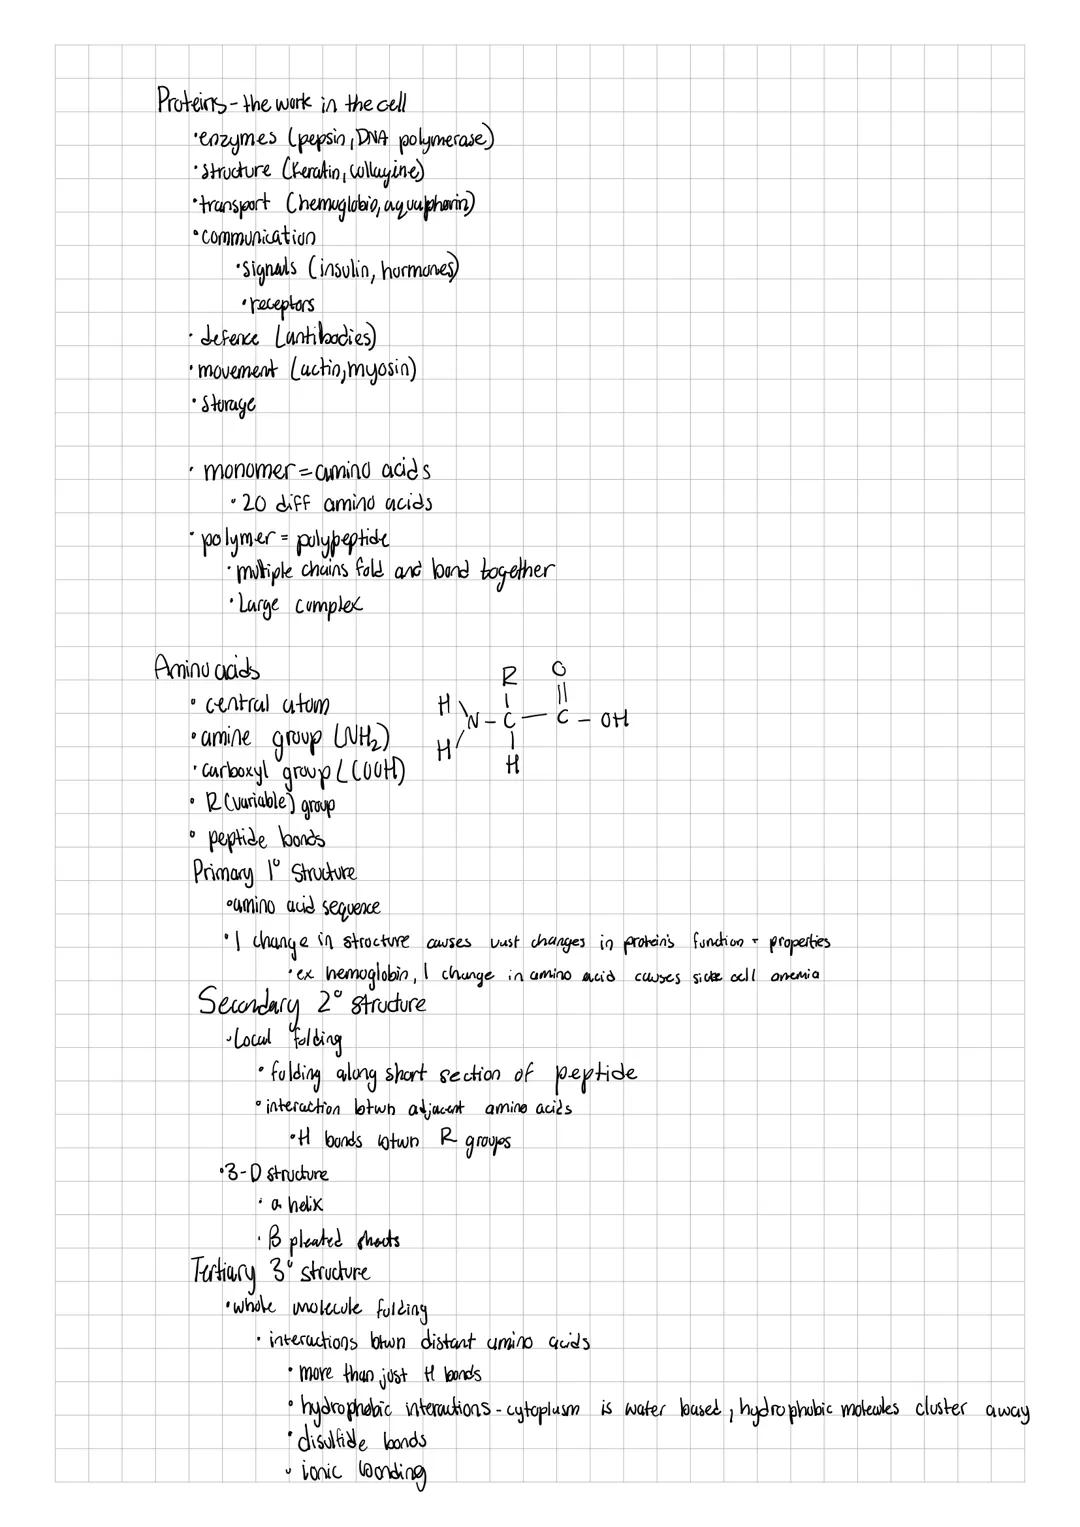 Proteins - the work in the cell
• enzymes (pepsin, DNA polymerase)
• structure (keratin, collagine)
• transport (hemoglobin, aquaphorin)
• communication
• signals (insulin, hormones)
• receptors
• defence (antibodies)
• movement (actin, myosin)
• storage
• monomer = amino acids
• 20 diff amino acids
• polymer = polypeptide
• multiple chains fold and bond together
• Large complex
Amino acids
• central atom
• amine group (NH₂)
• carboxyl group (COOH)
• R (variable) group
• peptide bonds
R O
H N - C - C - OH
H H
Primary 1° Structure
• amino acid sequence
• 1 change in structure causes vast changes in protein's function + properties
• ex hemoglobin, 1 change in amino acid causes sickle cell anemia
Secondary 2° structure
• Local folding
• folding along short section of peptide
• interaction btwn adjacent amino acids
• H bonds btwn R groups
• 3-D structure
• α helix
• β pleated sheets
Tertiary 3° structure
• whole molecule folding
• interactions btwn distant amino acids
• more than just H bonds
• hydrophobic interactions - cytoplasm is water based, hydrophobic molecules cluster away
• disulfide bonds
• ionic bonding